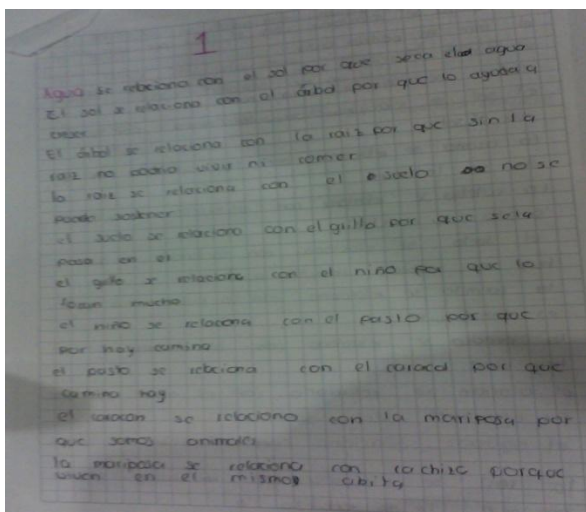 1
Agua se relaciona con el sol por que seca el agua
El sol se relaciona con el árbol por que lo ayuda a
crecer
El árbol se relaciona con la raiz por que sin la
raiz no podria vivir ni comer
la raiz se relaciona con el suelo no se
puede sostener
el suelo se relaciona con el grillo por que se la
pasa en el
el grillo se relaciona con el niño por que lo
mucho
el niño se relaciona con el pasto por que
por hay camina
el pasto se relaciona con el caracol por que
camina hay
el caracol se relaciona con la mariposa por
que somos animales
la mariposa se relaciona con porque
viven en el mismo abita